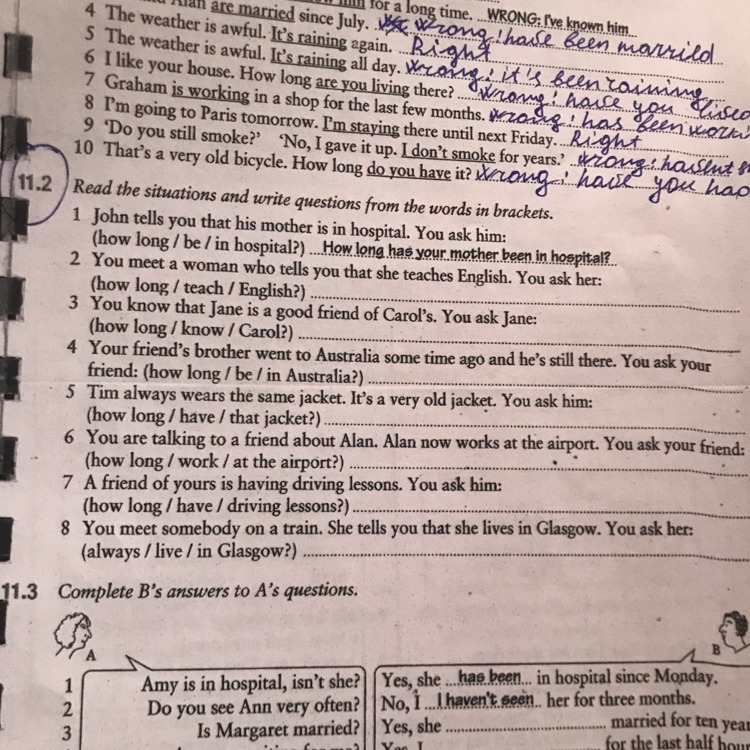 Alan are married since July. Wrong! have been married
for a long time. WRONG: I've known him
4 The weather is awful. It's raining again. Right
5 The weather is awful. It's raining all day. Wrong! it's been raining
6 I like your house. How long are you living there? Wrong! have you lived
7 Graham is working in a shop for the last few months. Wrong! has been
8 I'm going to Paris tomorrow. I'm staying there until next Friday. Right
9 'Do you still smoke?' 'No, I gave it up. I don't smoke for years.' Wrong!
10 That's a very old bicycle. How long do you have it? Wrong! have you had
11.2 Read the situations and write questions from the words in brackets.
1 John tells you that his mother is in hospital. You ask him:
(how long / be / in hospital?) How long has your mother been in hospital?
2 You meet a woman who tells you that she teaches English. You ask her:
(how long / teach / English?)
3 You know that Jane is a good friend of Carol's. You ask Jane:
(how long / know / Carol?)
4 Your friend's brother went to Australia some time ago and he's still there. You ask your
friend: (how long / be / in Australia?)
5 Tim always wears the same jacket. It's a very old jacket. You ask him:
(how long / have / that jacket?)
6 You are talking to a friend about Alan. Alan now works at the airport. You ask your friend:
(how long / work / at the airport?)
7 A friend of yours is having driving lessons. You ask him:
(how long / have / driving lessons?)
8 You meet somebody on a train. She tells you that she lives in Glasgow. You ask her:
(always / live / in Glasgow?)
11.3 Complete B's answers to A's questions.
A
B
1 Amy is in hospital, isn't she? Yes, she has been in hospital since Monday.
2 Do you see Ann very often? No, I I haven't seen her for three months.
3 Is Margaret married? Yes, she married for ten
Yes, I for the last half